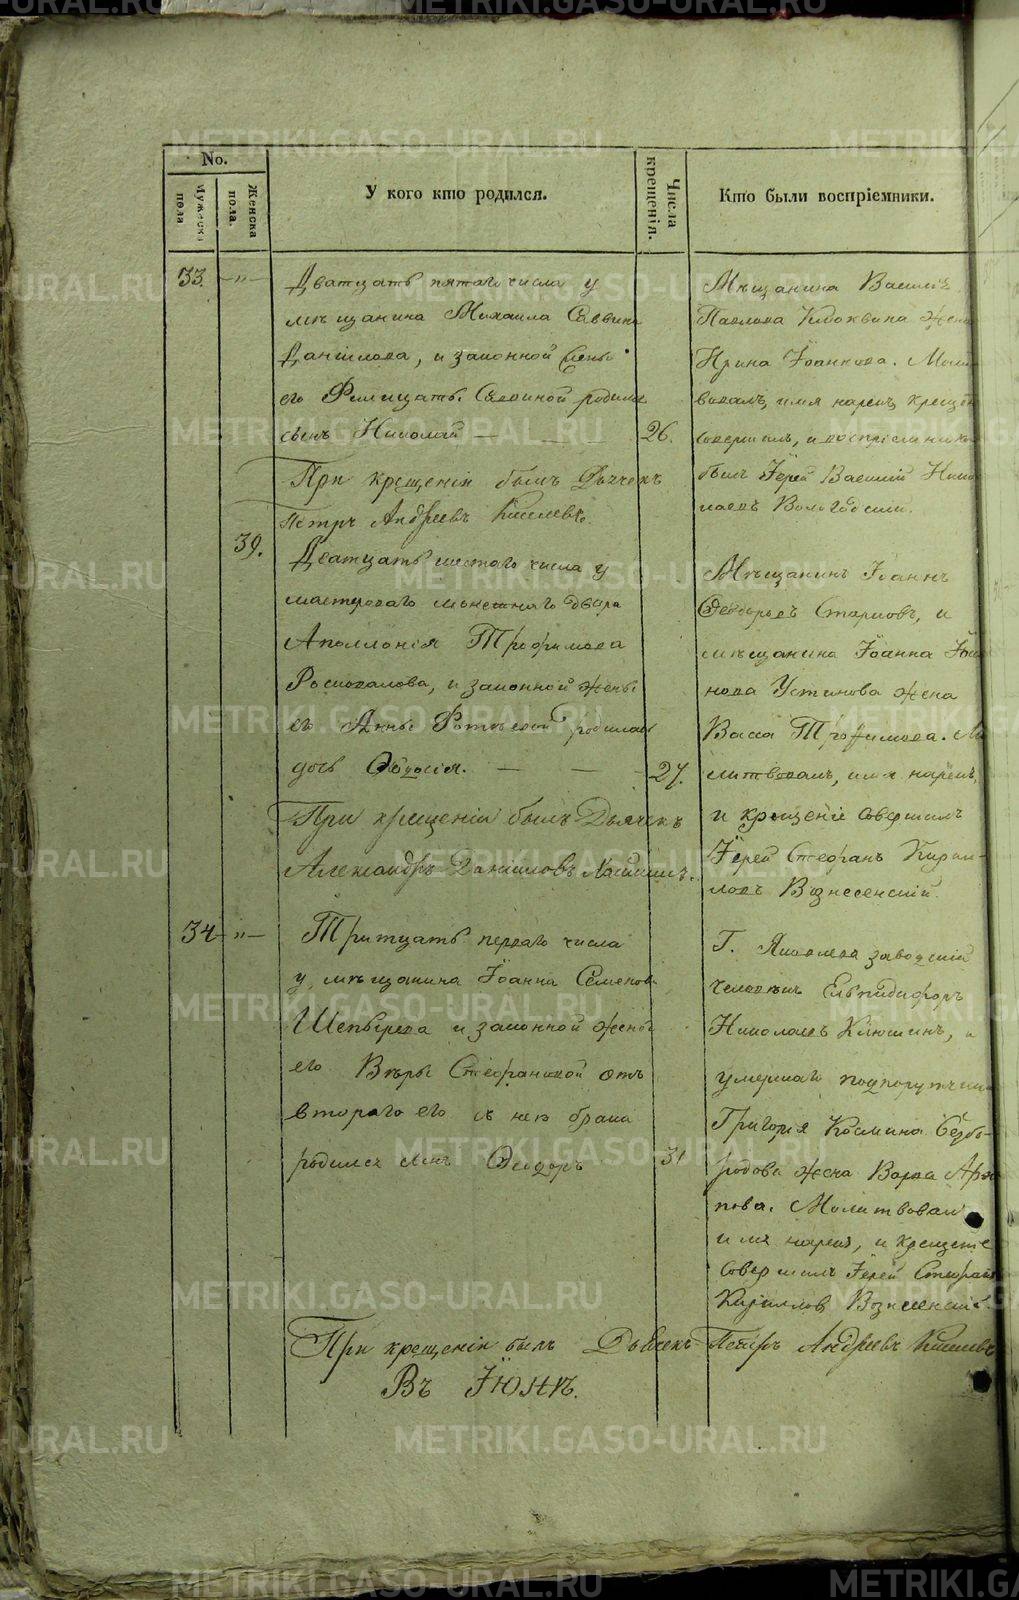 No.
Мужеска пола
Женска пола.
У кого кто родился.
Числа крещенія.
Кто были воспріемники.
33. —"—
Дватцать пятаго числа у
мѣщанина Михаила Саввина
Данилова, и законной жены
его родился
сынъ Николай — — — 26.
При крещеніи былъ Дьячекъ
Петръ Андреевъ Киселевъ.
Мѣщанина Василія
Павлова жена
Ирина Іоаннова. Моли-
вовалъ, имя нарекъ, крещен
совершилъ, и воспріемникъ
былъ Іерей Василій Нико-
лаевъ
39.
Дватцать шестаго числа у
мастероваго монетнаго двора
Аполлонія Трофимова
и законной жены
его Анны родилась
дочь Ѳеодосія. — — — 27.
При крещеніи былъ Дьячекъ
Александръ Даніиловъ
Мѣщанинъ Іоаннъ
Ѳеодоровъ и
мѣщанина Іоанна Іоан-
нова Устинова жена
Васса Трофимова. Мо-
литвовалъ, имя нарекъ,
и крещеніе совершилъ
Іерей Стефанъ Кирил-
ловъ Вознесенскій.
34 —"—
Тритцать перваго числа
у мѣщанина Іоанна Семенова
и законной жены
его Вѣры Стефановой отъ
втораго его съ нею брака
родился сынъ Ѳеодоръ 31
Г. Яковлева заводскій
человѣкъ Елпидифоръ
Николаевъ и
умершаго подпоручика
Григорія Космина Безбо-
родова жена Варва
Молитвовалъ
имя нарекъ, и крещеніе
совершилъ Іерей Стефанъ
Кирилловъ Вознесенскій.
При крещеніи былъ Дьячекъ Петръ Андреевъ Киселевъ
Въ Іюнѣ.
METRIKI.GASO-URAL.RU